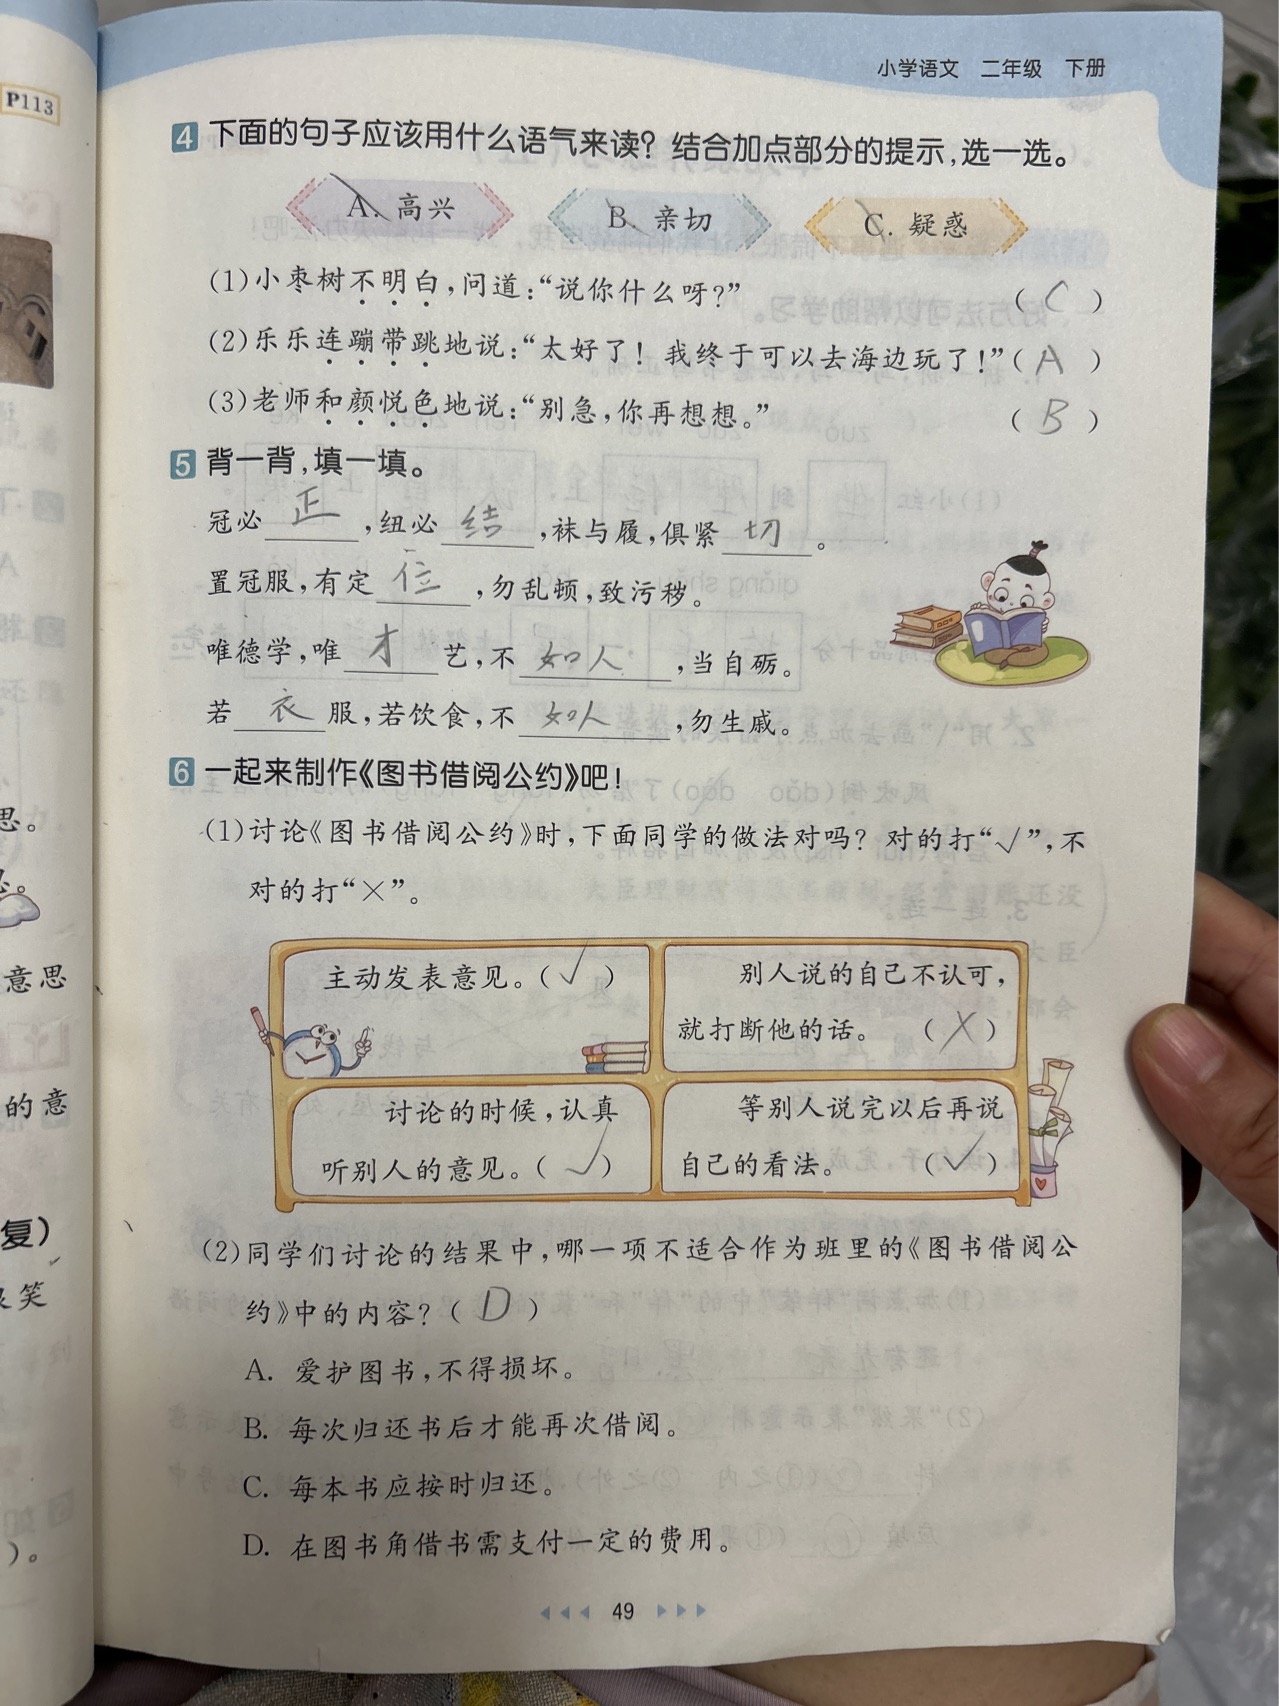 小学语文 二年级 下册
P113
4 下面的句子应该用什么语气来读？结合加点部分的提示，选一选。
A. 高兴 B. 亲切 C. 疑惑
(1)小枣树不明白，问道：“说你什么呀？” （ C ）
(2)乐乐连蹦带跳地说：“太好了！我终于可以去海边玩了！”（ A ）
(3)老师和颜悦色地说：“别急，你再想想。” （ B ）
5 背一背，填一填。
冠必正，纽必结，袜与履，俱紧切。
置冠服，有定位，勿乱顿，致污秽。
唯德学，唯才艺，不如人，当自砺。
若衣服，若饮食，不如人，勿生戚。
6 一起来制作《图书借阅公约》吧！
(1)讨论《图书借阅公约》时，下面同学的做法对吗？对的打“√”，不
对的打“×”。
主动发表意见。（ √ ）
别人说的自己不认可，
就打断他的话。 （ × ）
讨论的时候，认真
听别人的意见。（ √ ）
等别人说完以后再说
自己的看法。 （ √ ）
(2)同学们讨论的结果中，哪一项不适合作为班里的《图书借阅公
约》中的内容？（ D ）
A. 爱护图书，不得损坏。
B. 每次归还书后才能再次借阅。
C. 每本书应按时归还。
D. 在图书角借书需支付一定的费用。
49
思。
意思
的意
复）
笑
）。